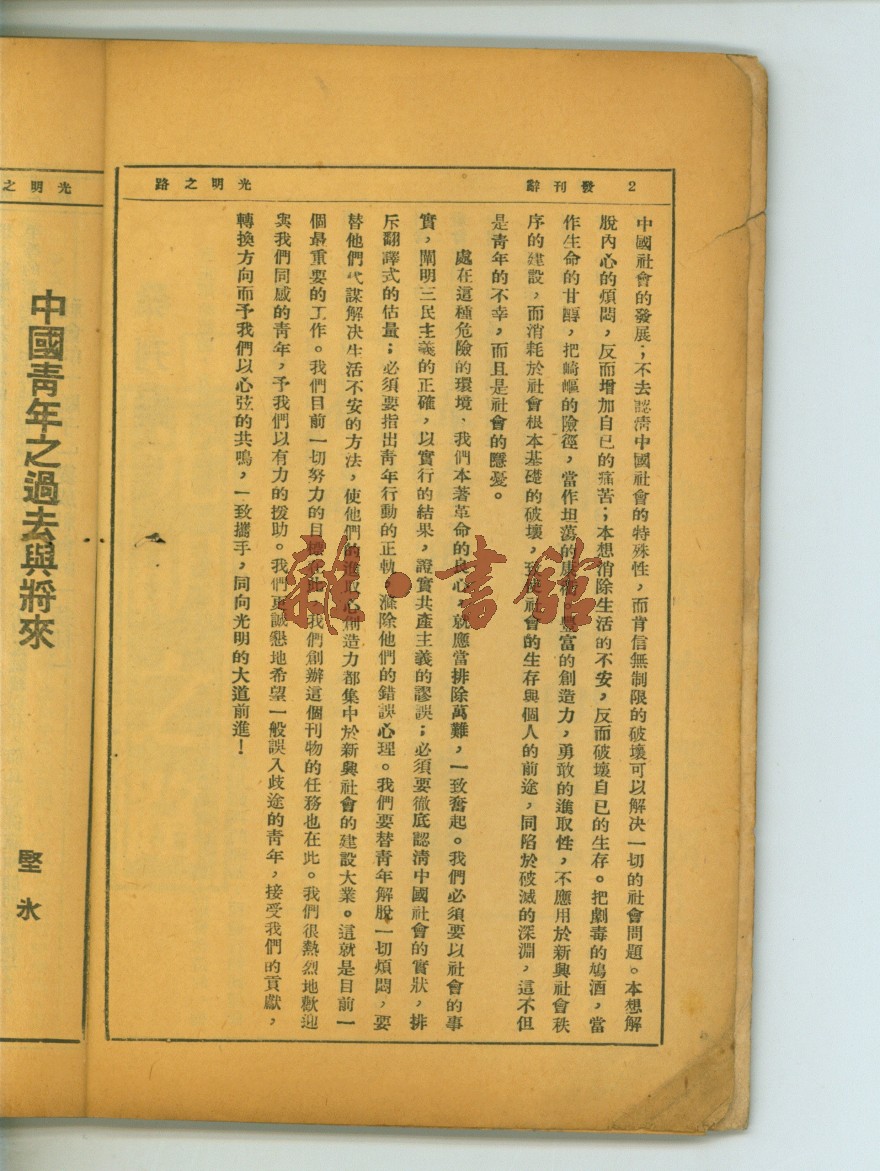 2　發刊辭　光明之路
中國社會的發展；不去認清中國社會的特殊性，而肯信無制限的破壞可以解决一切的社會問題。本想解
脫內心的煩悶，反而增加自已的痛苦；本想消除生活的不安，反而破壞自已的生存。把劇毒的鴆酒，當
作生命的甘醇，把崎嶇的險徑，當作坦蕩的康衢，豐富的創造力，勇敢的進取性，不應用於新興社會秩
序的建設，而消耗於社會根本基礎的破壞，致使社會的生存與個人的前途，同陷於破滅的深淵，這不但
是青年的不幸，而且是社會的隱憂。
處在這種危險的環境，我們本著革命的良心，就應當排除萬難，一致奮起。我們必須要以社會的事
實，闡明三民主義的正確，以實行的結果，證實共產主義的謬誤；必須要徹底認清中國社會的實狀，排
斥翻譯式的估量；必須要指出青年行動的正軌，滌除他們的錯誤心理。我們要替青年解脫一切煩悶，要
替他們代謀解决生活不安的方法，使他們的進取心創造力都集中於新興社會的建設大業。這就是目前一
個最重要的工作。我們目前一切努力的目標在此，我們創辦這個刊物的任務也在此。我們很熱烈地歡迎
與我們同感的青年，予我們以有力的援助。我們更誠懇地希望一般誤入歧途的青年，接受我們的貢獻，
轉換方向而予我們以心弦的共鳴，一致攜手，同向光明的大道前進！
光明之
中國青年之過去與將來
堅冰
雜·書館